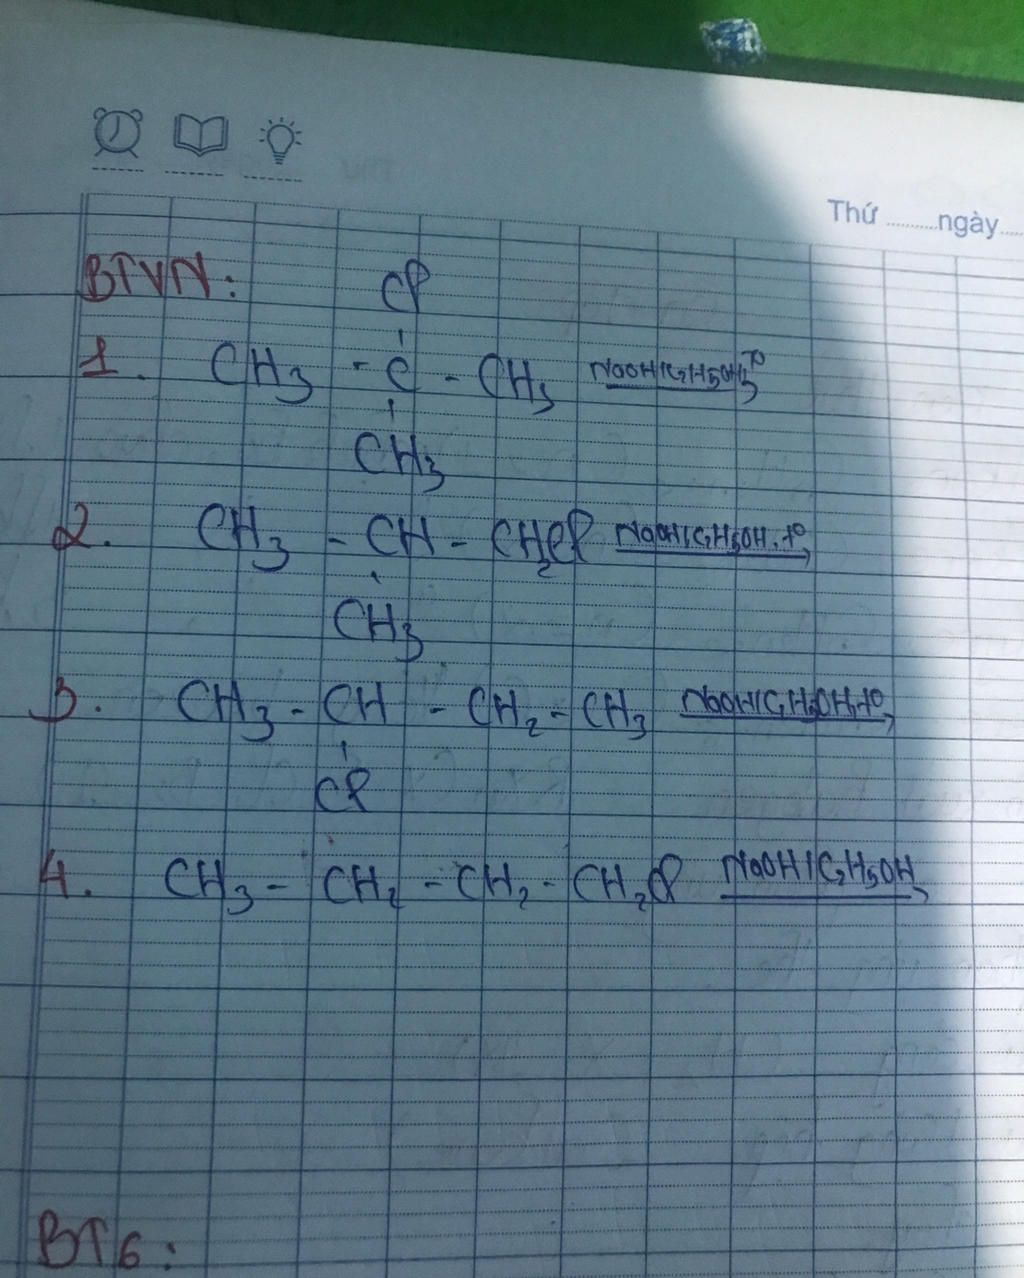 Thứ ..........ngày.....
BTVN:
Cl
1. CH3 - C - CH3 NaOH/C2H5OH, to
CH3
2. CH3 - CH - CH2Cl NaOH/C2H5OH, to
CH3
3. CH3 - CH - CH2 - CH3 NaOH/C2H5OH, to
Cl
4. CH3 - CH2 - CH2 - CH2Cl NaOH/C2H5OH
BT6: